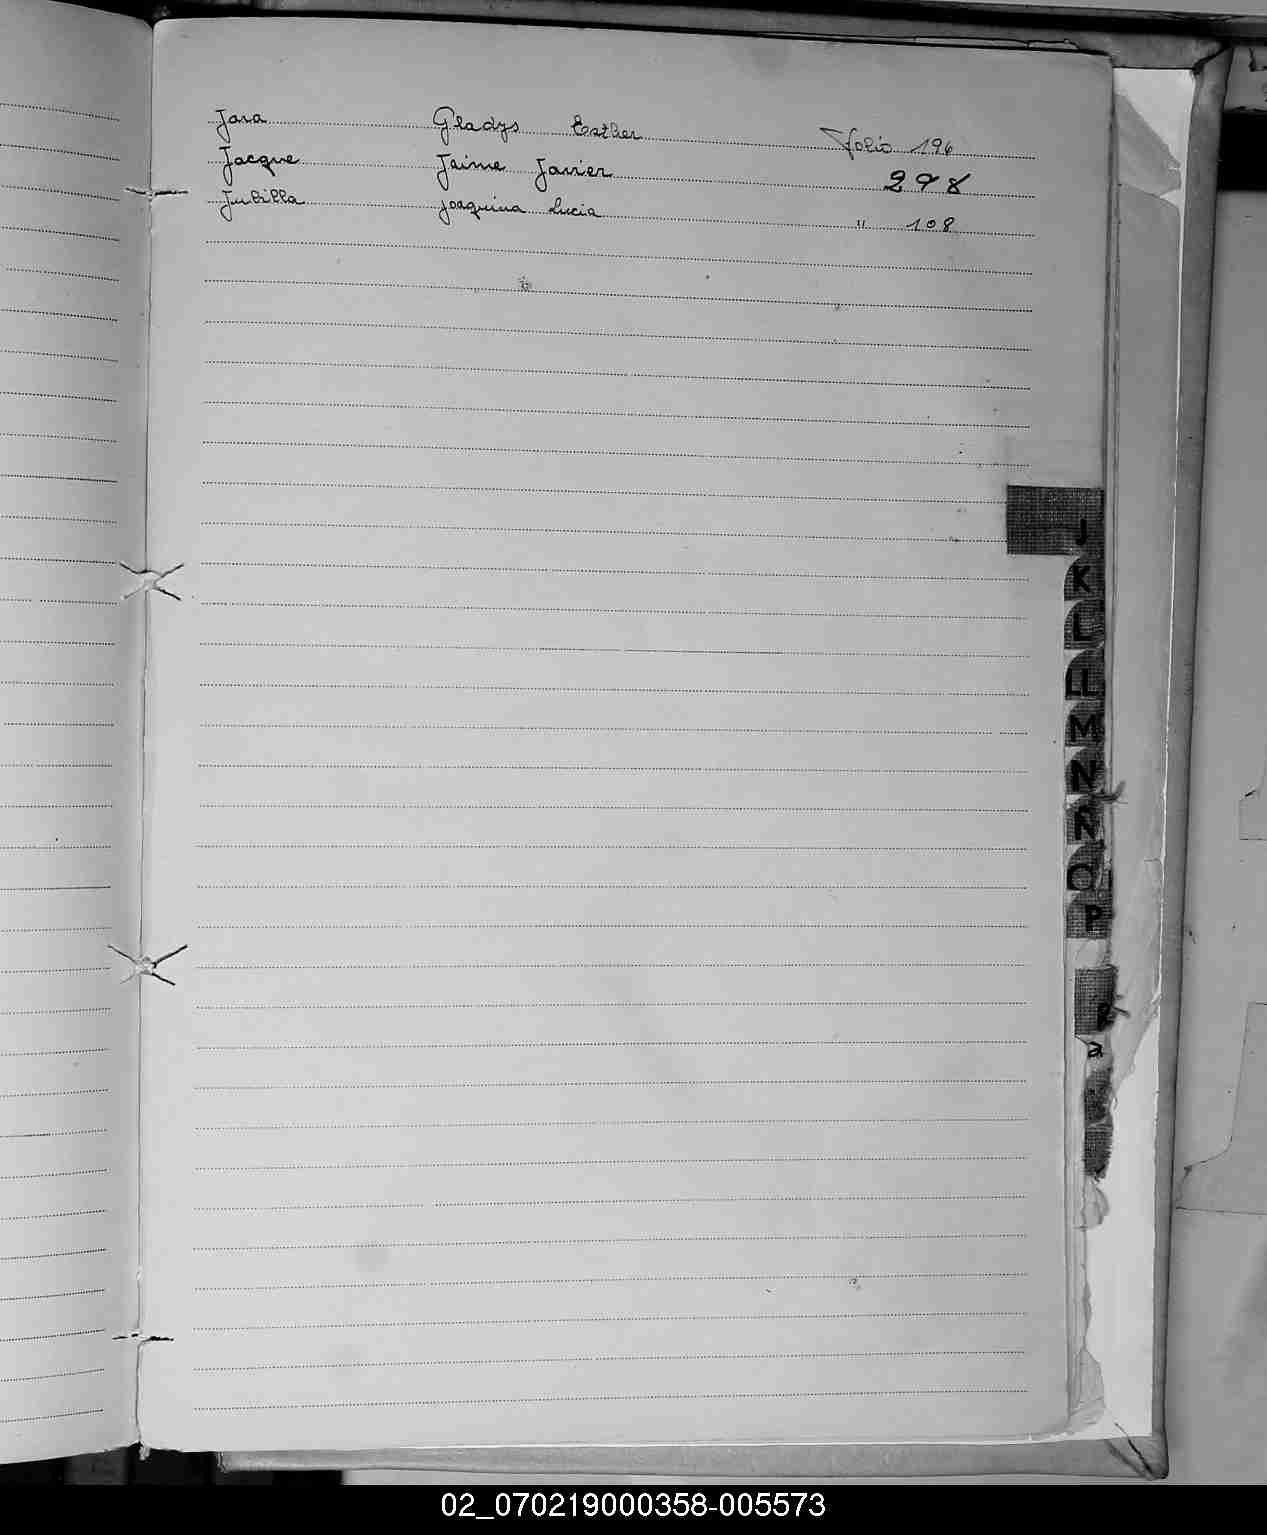 Jara Gladys Esther Folio 196
Jacque Jaime Javier 298
Jubilla Joaquina Lucia " 108
J
K
L
LL
M
N
Ñ
O
P
R
02_070219000358-005573